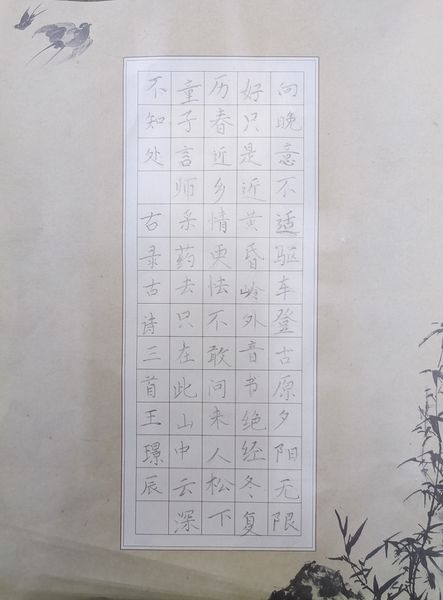 向晚意不适驱车登古原夕阳无限
好只是近黄昏岭外音书绝经冬复
历春近乡情更怯不敢问来人松下
童子言师采药去只在此山中云深
不知处 右录古诗三首王璟辰